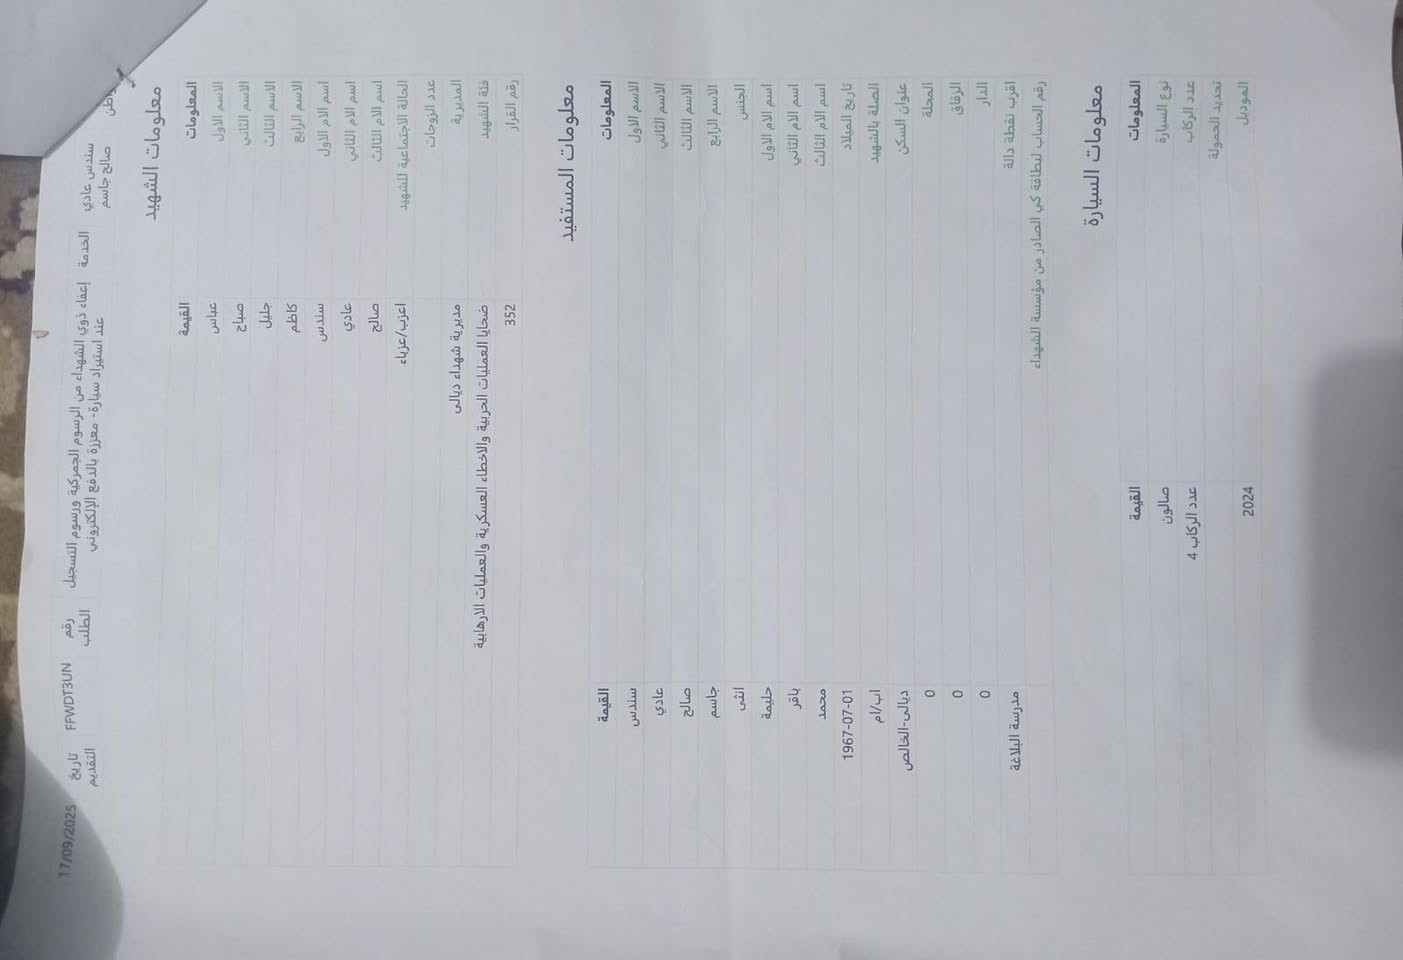 سندس عادي صالح جاسم
الخدمة
إعفاء ذوي الشهداء من الرسوم الجمركية ورسوم التسجيل عند استيراد سيارة- معززة بالدفع الإلكتروني
رقم الطلب
FFWDT3UN
تاريخ التقديم
17/09/2025
معلومات الشهيد
المعلومات القيمة
الاسم الاول عباس
الاسم الثاني صباح
الاسم الثالث جليل
الاسم الرابع كاظم
اسم الام الاول سندس
اسم الام الثاني عادي
اسم الام الثالث صالح
الحالة الاجتماعية للشهيد اعزب/عزباء
عدد الزوجات
المديرية مديرية شهداء ديالى
فئة الشهيد ضحايا العمليات الحربية والاخطاء العسكرية والعمليات الارهابية
رقم القرار 352
معلومات المستفيد
المعلومات القيمة
الاسم الاول سندس
الاسم الثاني عادي
الاسم الثالث صالح
الاسم الرابع جاسم
الجنس انثى
اسم الام الاول حليمة
اسم الام الثاني باقر
اسم الام الثالث محمد
تاريخ الميلاد 1967-07-01
الصلة بالشهيد اب/ام
عنوان السكن ديالى-الخالص
المحلة 0
الزقاق 0
الدار 0
اقرب نقطة دالة مدرسة البلاغة
رقم الحساب لبطاقة كي الصادر من مؤسسة الشهداء
معلومات السيارة
المعلومات القيمة
نوع السيارة صالون
عدد الركاب عدد الركاب 4
تحديد الحمولة
الموديل 2024